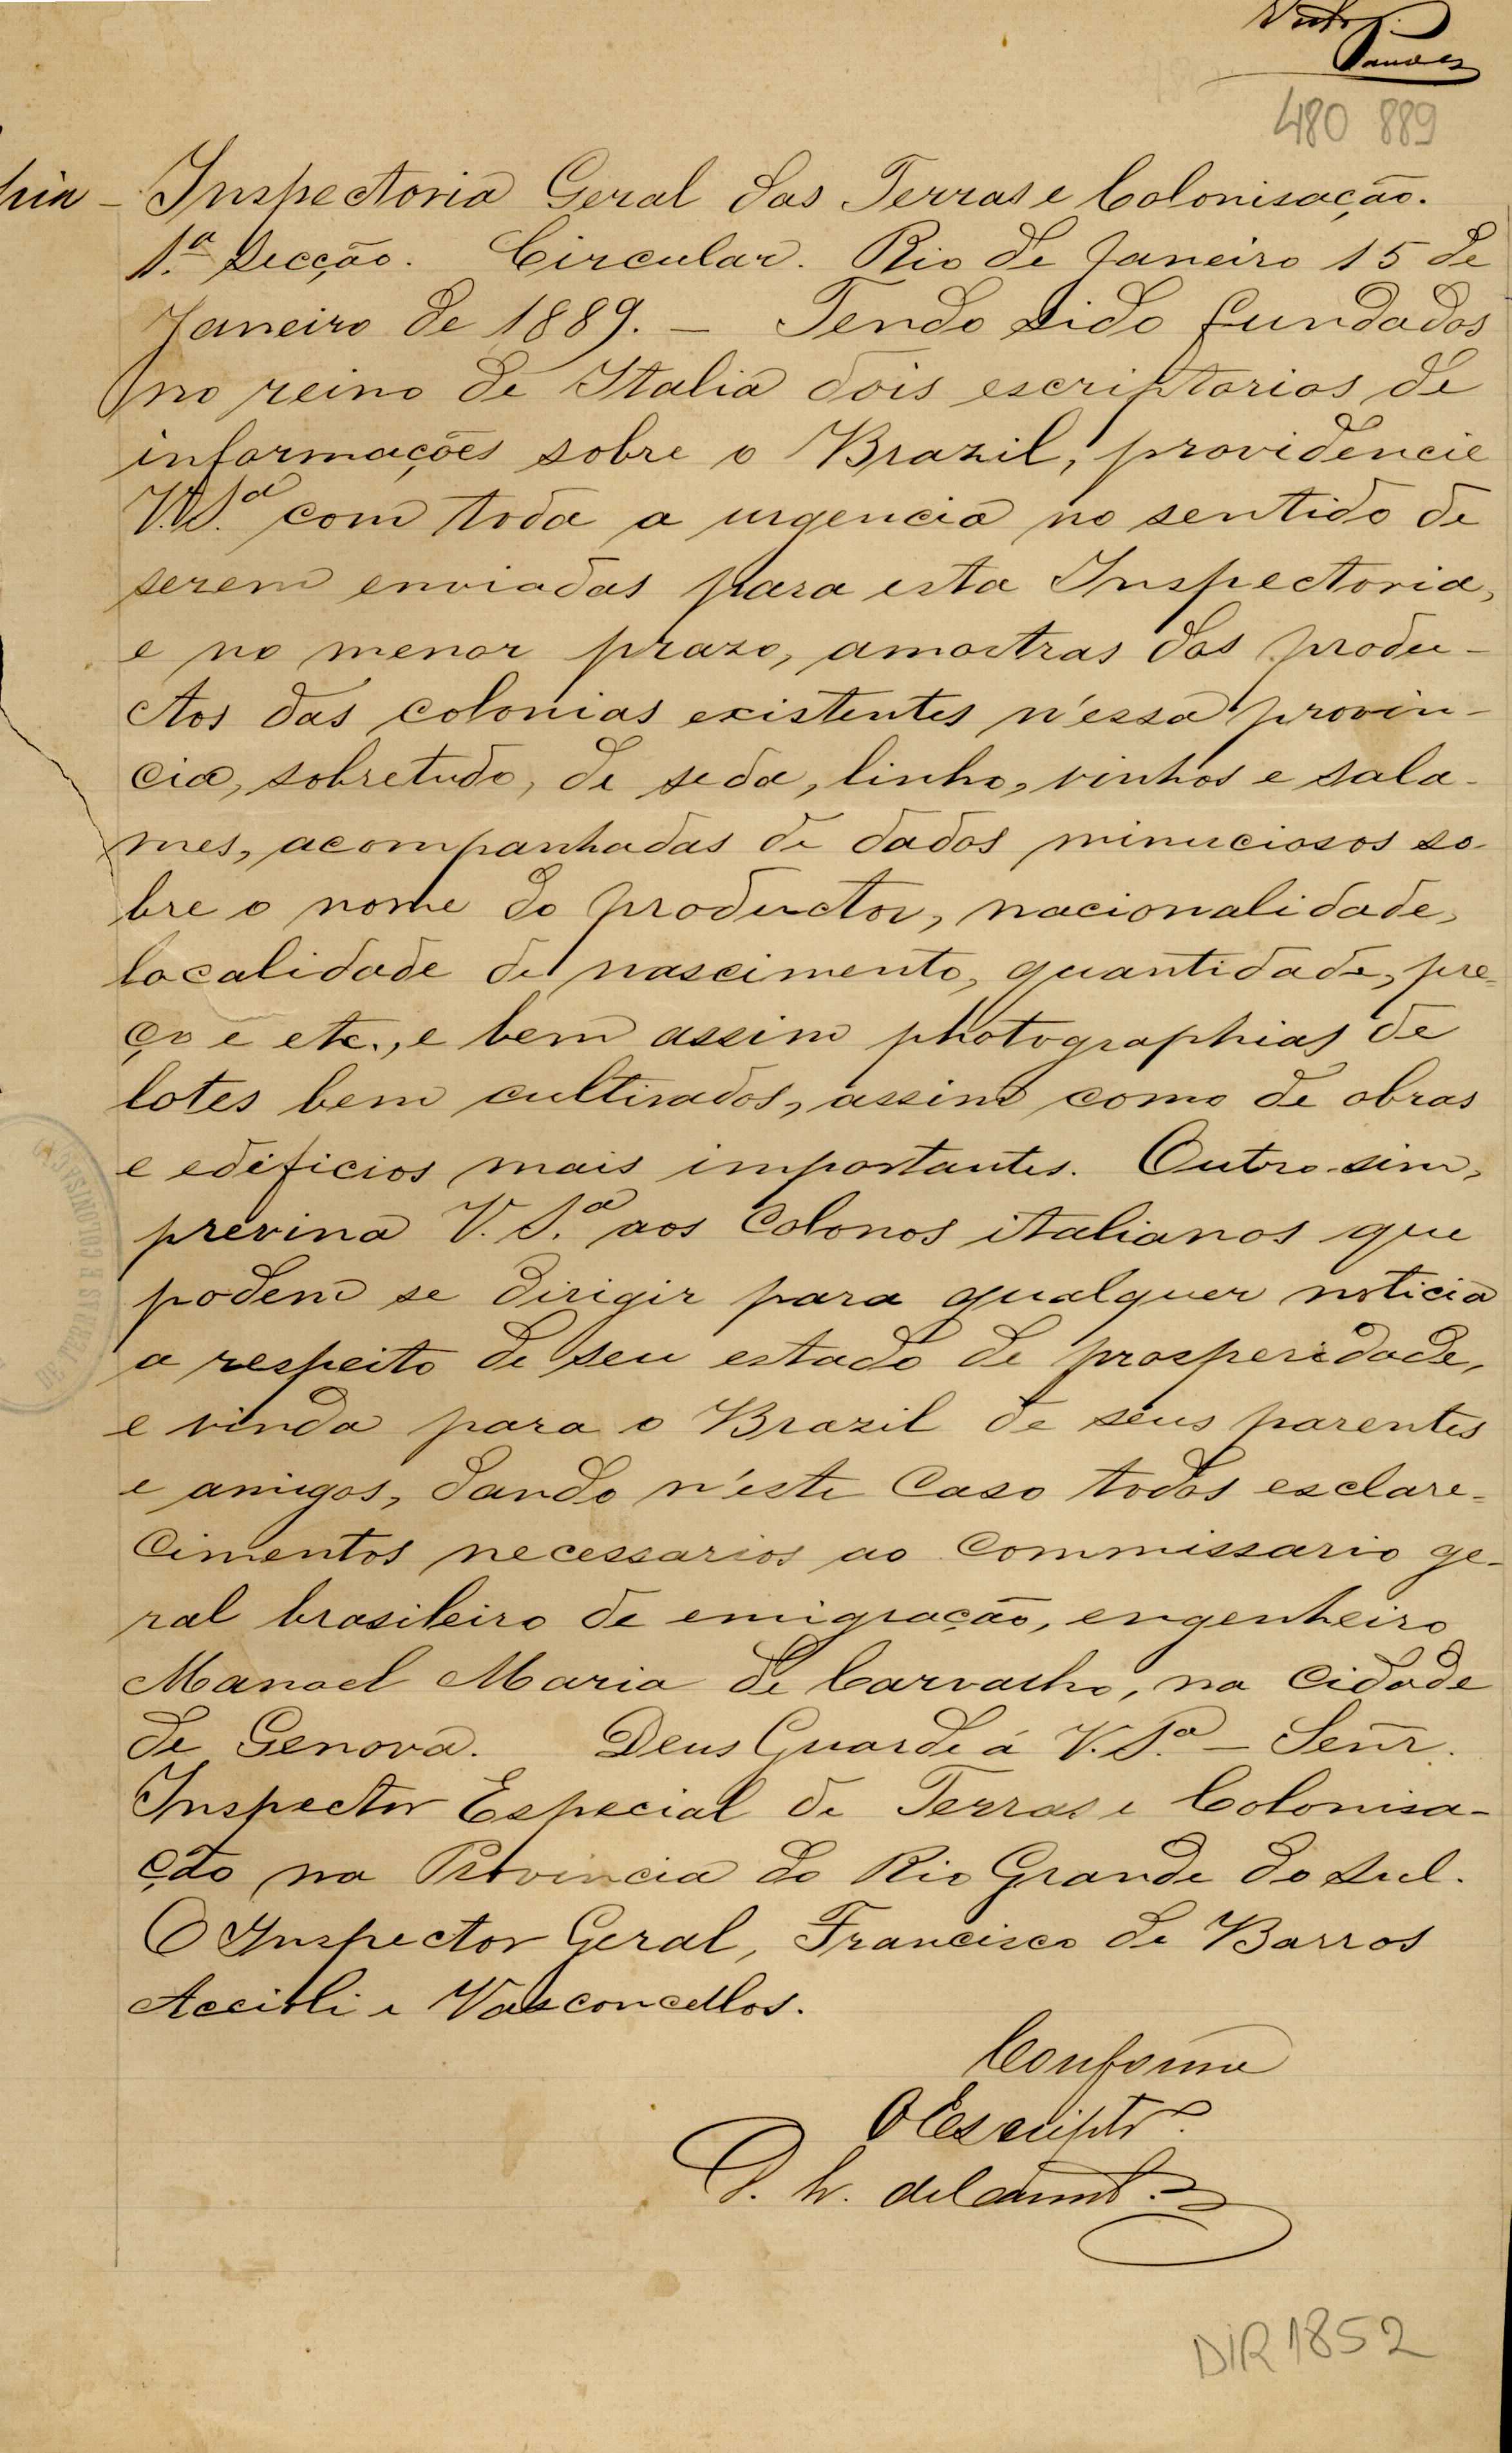 480 889
Inspectoria Geral das Terras e Colonisação.
1.ª Secção. Circular. Rio de Janeiro 15 de
Janeiro de 1889. — Tendo sido fundados
no reino de Italia dois escriptorios de
informações sobre o Brazil, providencie
V. S.ª com toda a urgencia no sentido de
serem enviadas para esta Inspectoria,
e no menor prazo, amostras dos produ-
ctos das colonias existentes n'essa provin-
cia, sobretudo, de seda, linho, vinhos e sala-
mes, acompanhadas de dados minuciosos so-
bre o nome do productor, nacionalidade,
localidade de nascimento, quantidade, pre-
ço e etc., e bem assim photographias de
lotes bem cultivados, assim como de obras
e edificios mais importantes. Outro-sim,
previna V. S.ª aos colonos italianos que
podem se dirigir para qualquer noticia
a respeito de seu estado de prosperidade,
e vinda para o Brazil de seus parentes
e amigos, dando n'este caso todos esclare-
cimentos necessarios ao commissario ge-
ral brasileiro de emigração, engenheiro
Manoel Maria de Carvalho, na cidade
de Genova. Deus Guarde á V. S.ª — Señr.
Inspector Especial de Terras e Colonisa-
ção na Provincia do Rio Grande do Sul.
O Inspector Geral, Francisco de Barros
Accioli e Vasconcellos.
Conforme
O Escriptr.º
DE TERRAS E COLONISAÇÃO
DIR 1852